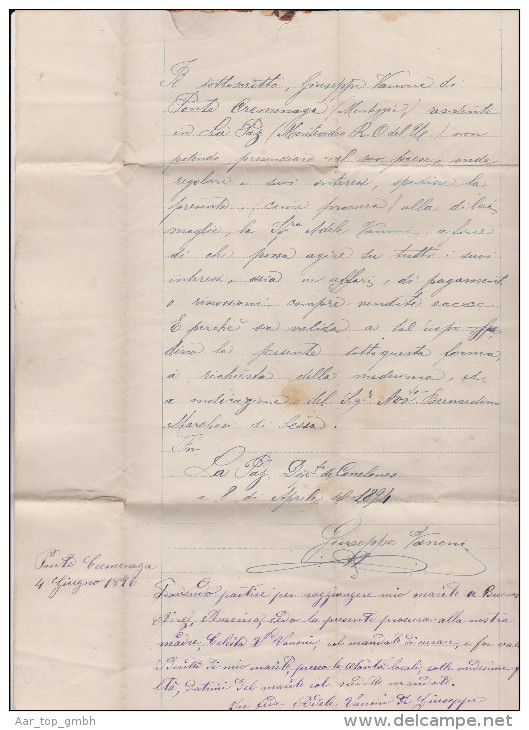 Il sottoscritto, Giuseppe Vanoni di
Ponte Cremenaga residente
in La Paz (Montevideo R. O del U.) non
potendo presenziare nel suo paese, onde
regolare i suoi interessi, spedisce la
presente, come procura alla di lui
moglie, la Sra Adele Vanoni, a fine
di che possa agire su tutti i suoi
interessi, ossia in affari, di pagamenti
o riscossioni, compre vendite
E perchè sia valida a tal uopo
la presente sotto questa forma,
a richiesta della medesima, ed
a indicazione del Sigr Bernardoni
Marchesi di Sessa.
In
La Paz de Canelones
a 8 di Aprile di 1894
Giuseppe Vanoni
Ponte Cremenaga
4 Giugno 1896
Dovendo partire per raggiungere mio marito a Buenos
Aires, America, cedo la presente procura alla nostra
madre, Va Vanoni, col mandato di curare, e far valere
i diritti di mio marito, presso le autorità locali, colle medesime
datimi del marito col mandato.
In fede Adele Vanoni di Giuseppe
Aar_top_gmbh
delcampe.net